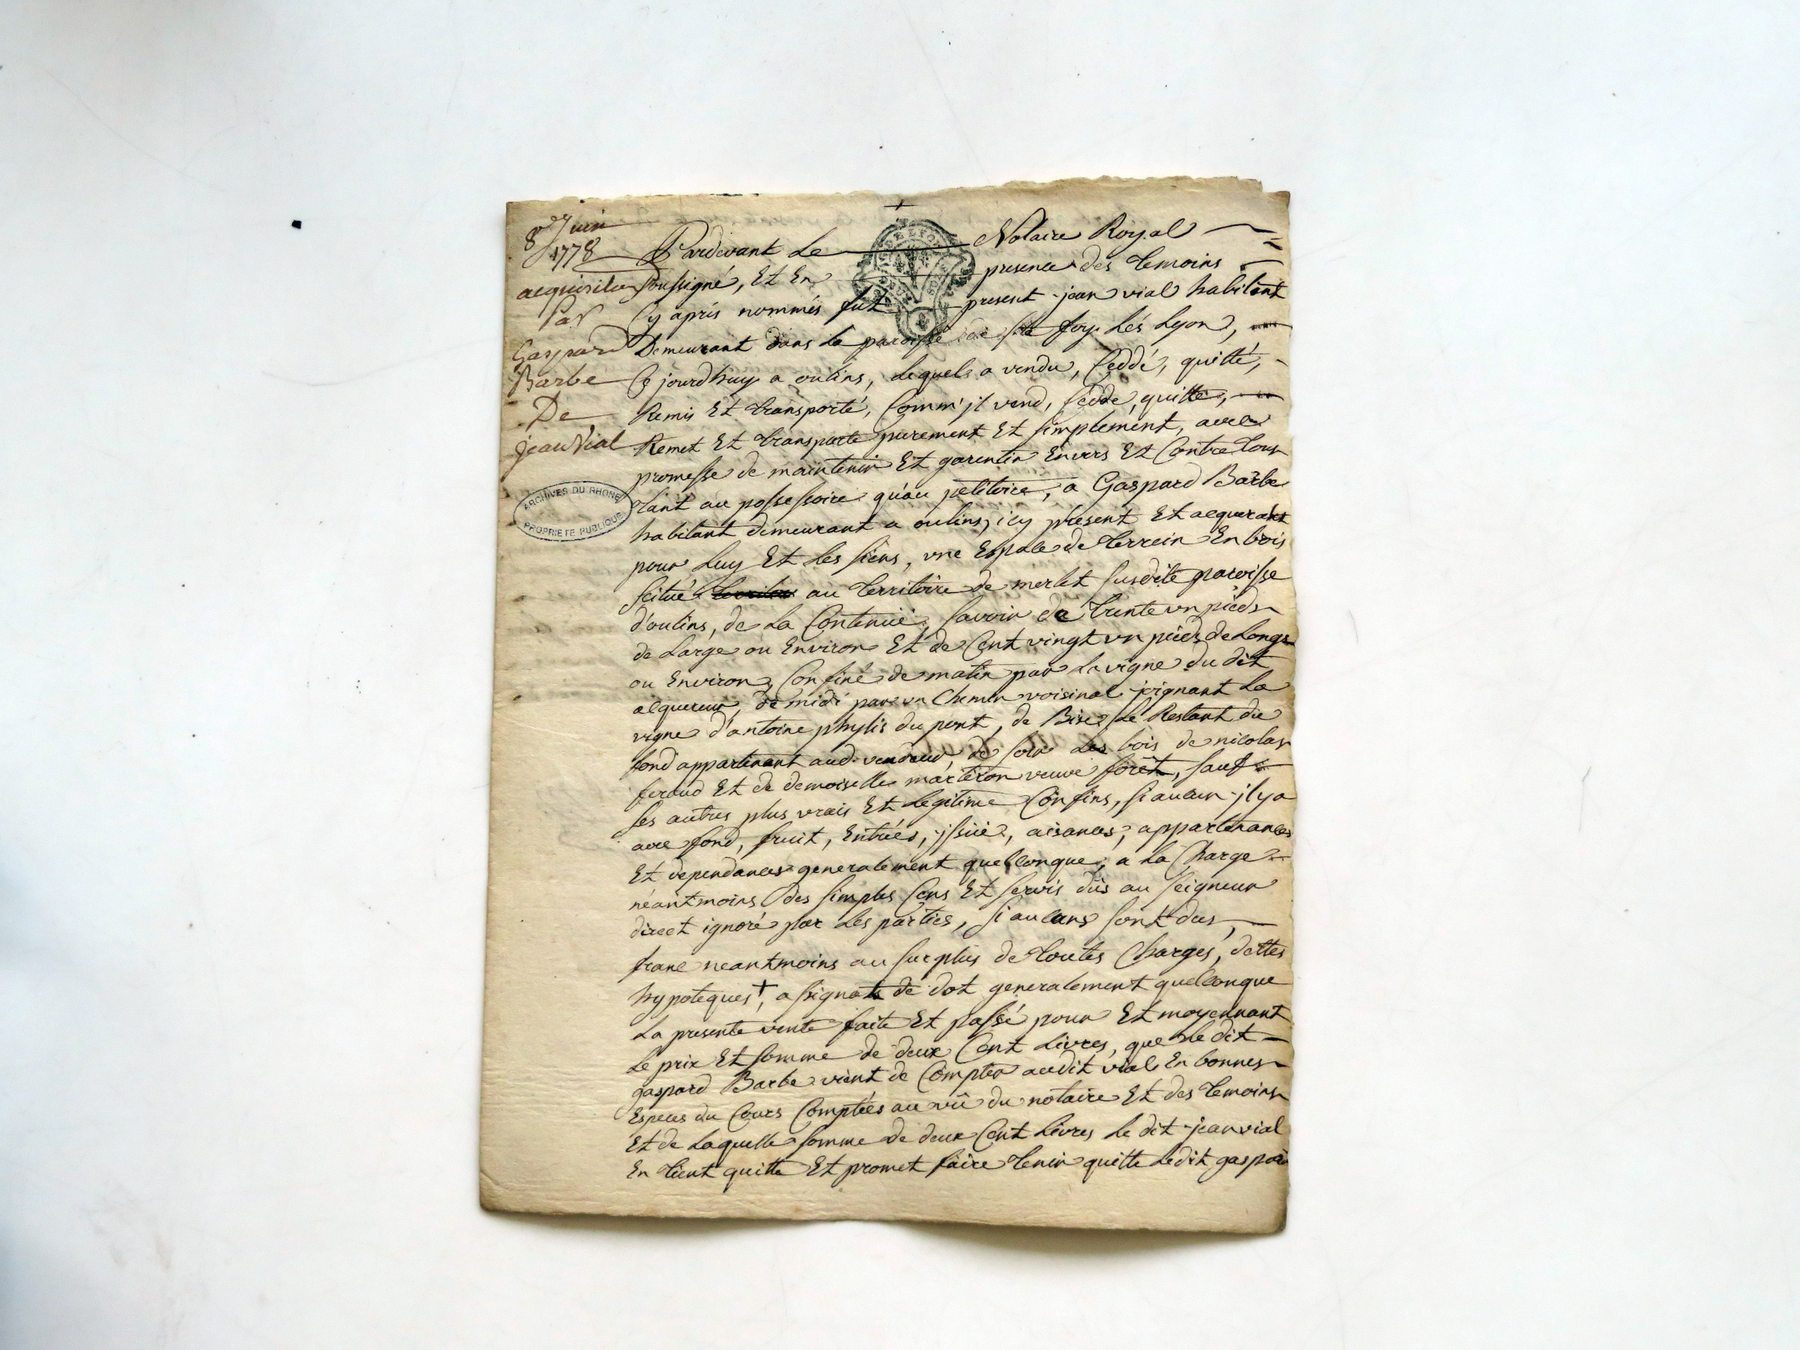 8e Juin
1778
acquisition
Par
Gaspard
Barbe
De
jean Vial
ARCHIVES DU RHONE
PROPRIETE PUBLIQUE
Pardevant Le Notaire Royal
soussigné, Et En presence des temoins
cy aprés nommés fut present jean vial habitant
Demeurant dans La paroisse de ste foy Lés Lyon,
Ce jourdhuy a oulins, Lequel a vendu, Ceddé, quitté,
Remis Et transporté, Comm' jl vend, Cedde, quitte,
Remet Et transporte purement Et simplement, avec
promesse de maintenir Et garentir Envers Et Contre tous
tant au possessoire qu'au petitoire, a Gaspard Barbe
habitant demeurant a oulins, icy présent Et acquerant
pour Luy Et Les siens, vne Espale de terrein En bois
scitué au territoire de merlet susdite paroisse
d'oulins, de La Contenüe, savoir de trente vn pieds
de Large ou Environ Et de Cent vingt vn pieds de Longs
ou Environ, Confiné de matin par La vigne du dit
acquereur, de midi par un Chemin voisinal joignant La
vigne d'antoine phylis du pont, de Bise Le Restant du
fond appartenant aud. vendeur, de soir Les bois de nicolas
feroud Et de demoiselle marteron veuve forêt, sauf
ses autres plus vrais Et Legitime Confins, si aucun jl y a
avec fond, fruit, Entrées, jssüe, aisances, appartenances
Et dependances generalement quelconque, a La Charge
néantmoins des simples Cens Et servis düs au seigneur
direct ignoré par Les parties, si aucuns sont dus,
franc neantmoins au surplus de toutes Charges, dettes
hypoteques +, assignats de dot generalement quelconque
La presente vente faite Et passé pour Et moyennant
Le prix Et somme de deux Cent Livres, que Le dit
gaspard Barbe vient de Compter audit vial En bonnes
Especes du Cours Comptées au vû du notaire Et des temoins
Et de Laquelle somme de deux Cent Livres Le dit jean vial
En tient quitte Et promet faire tenir quitte Ledit gaspard